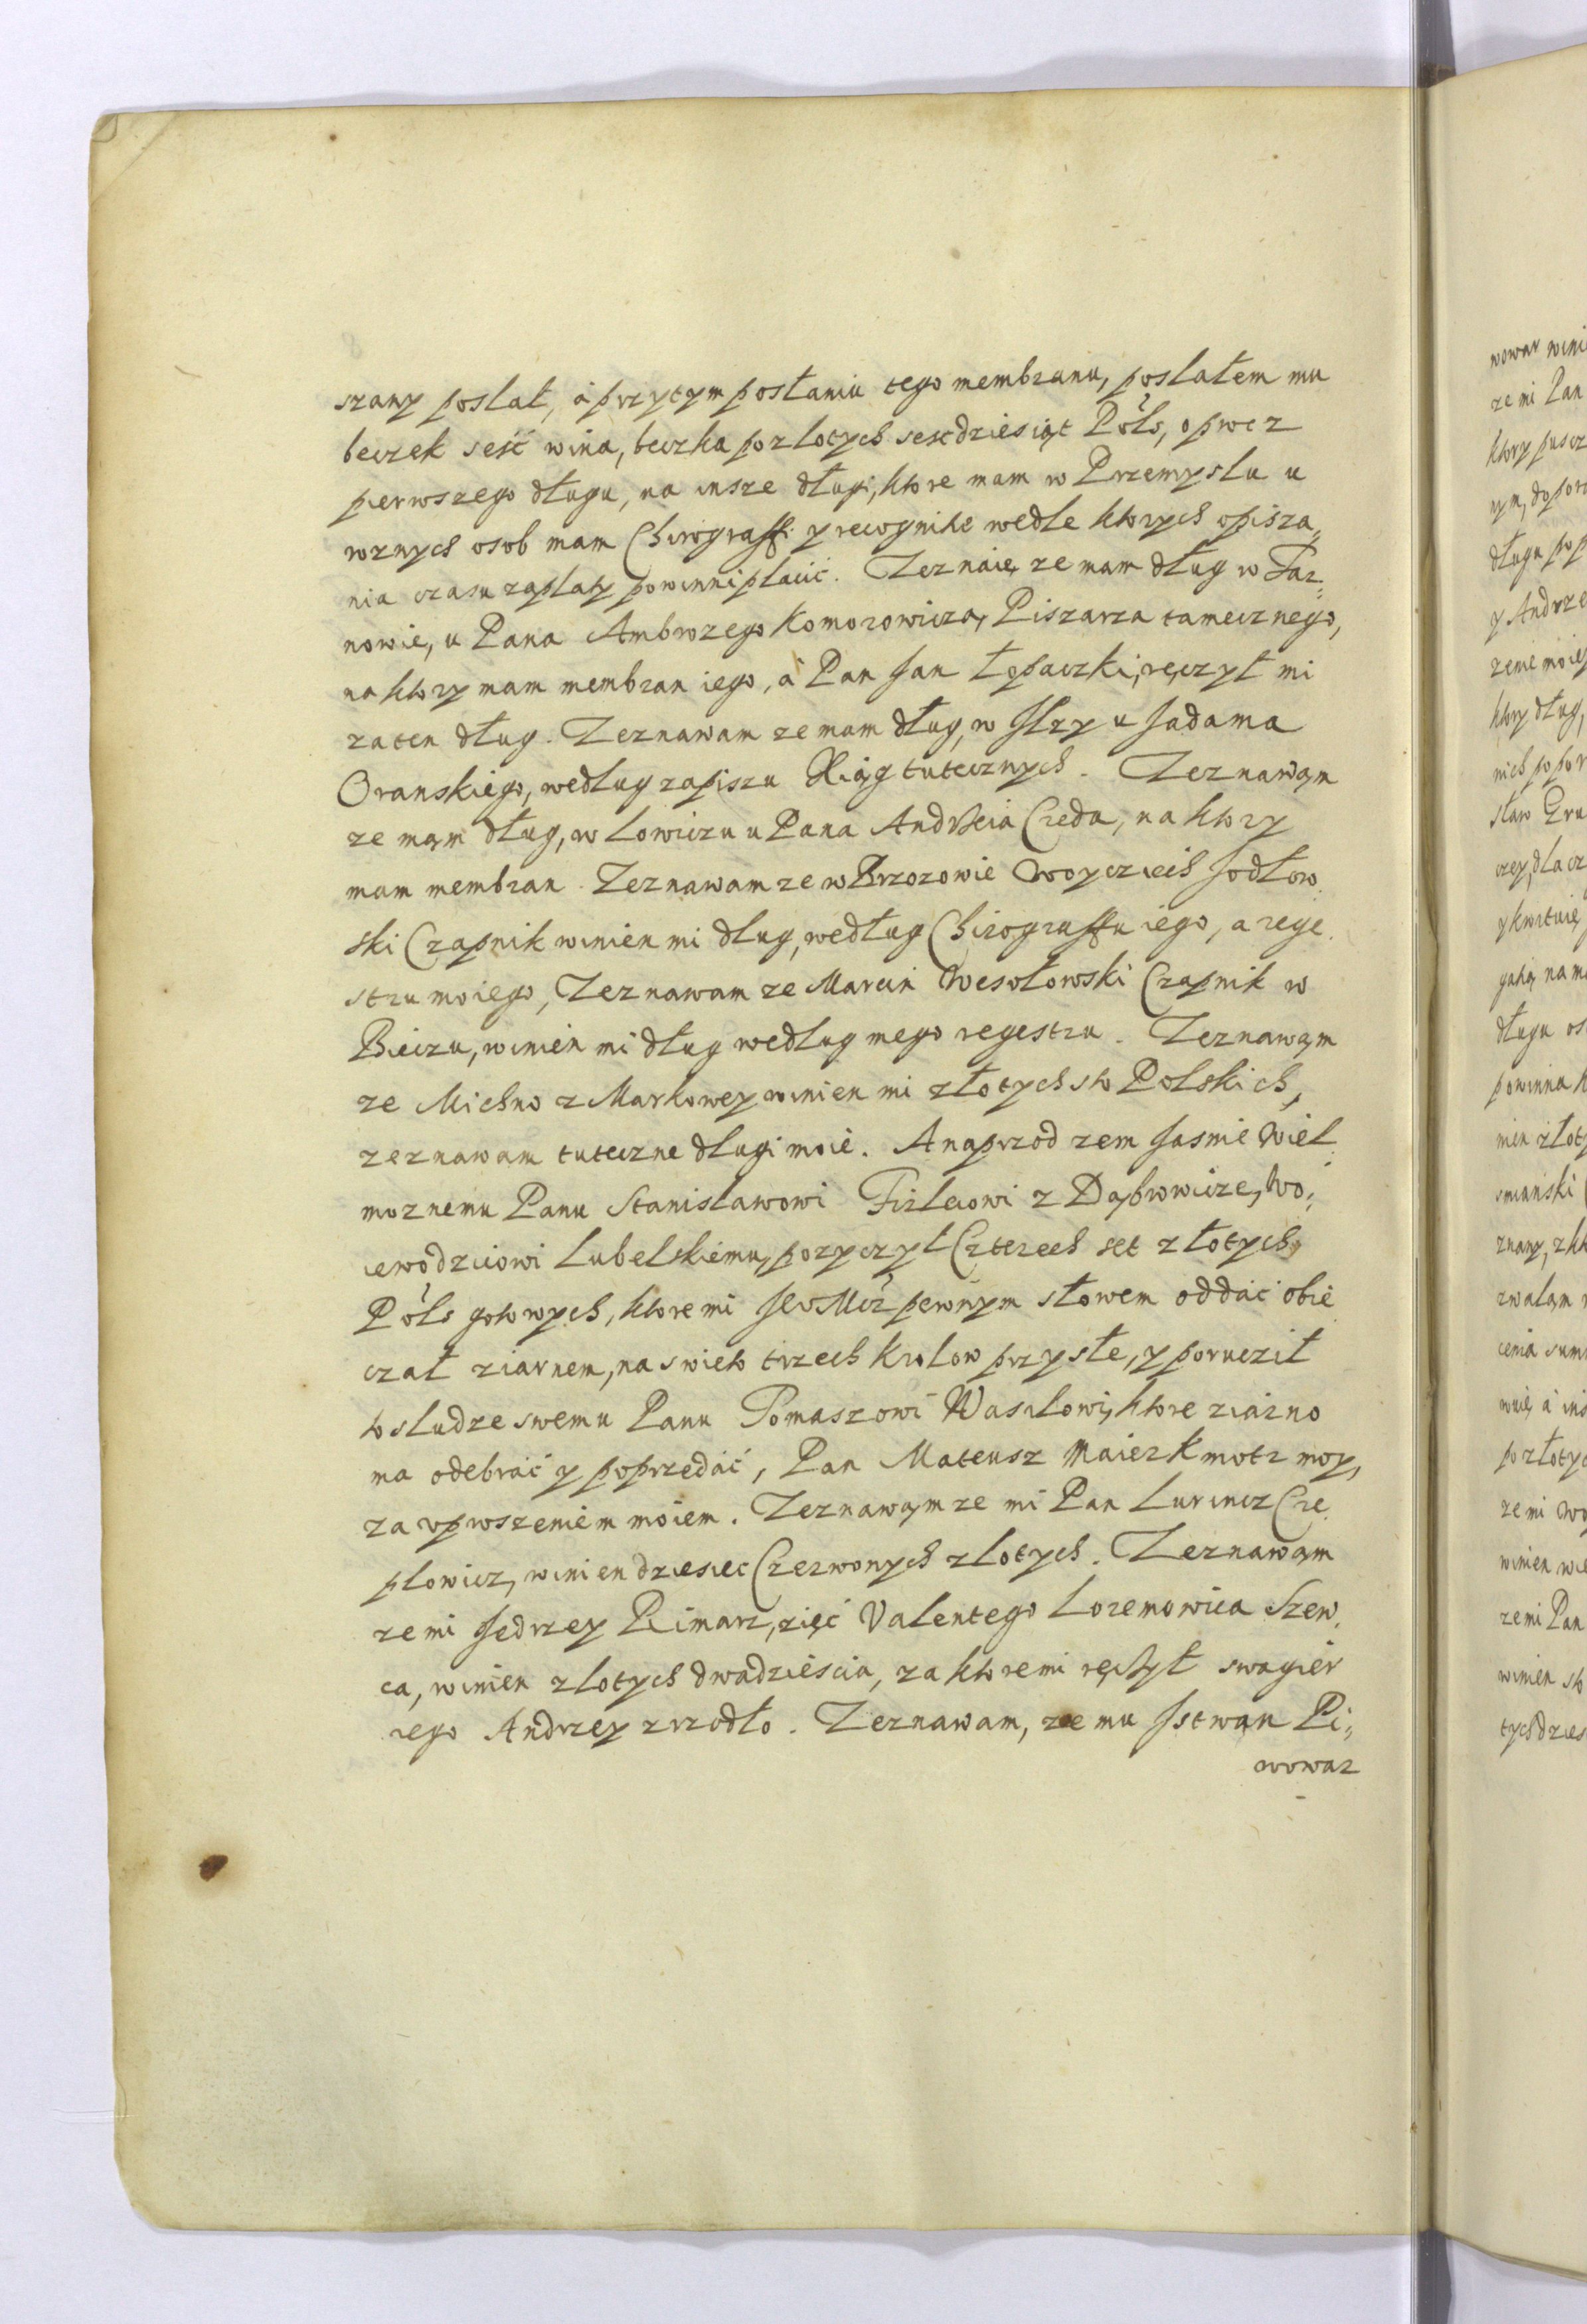 szany poslał, á przytym posłaniu tego membranu, poslałem mu
beczek seść wina, beczka po zlotych sescdziesiąt Pols, oprocz
pierwszego długu, na insze długi, ktore mam w Przemyslu u
roznych osob mam Chirograffi y recognihe wedle ktorych opisza„
nia czasu zapłaty powinni placić. Zeznaię ze mam dług w Tar„
nowie, u Pana Ambrozego Komorowicza, Piszarza tamecznego,
na ktory mam membran iego, á Pan Jan Łopaczki, ręczył mi
za ten dług. Zeznawam ze mam dług, w Ilzy u Jadama
Oranskiego, według zapiszu Xiąg tutecznych. Zeznawąm
ze mąm dług, w Lowiczu u Pana Andrzeia Czeda, na ktory
mam membran. Zeznawam ze w Brzozowie Woycziech Jodłow
ski Czapnik winien mi dług, według Chirograffu iego, a rege
stru moiego, Zeznawam ze Marcin Wesołowski Czapnik w
Bieczu, winien mi dług według mego regestru. Zeznawąm
ze Michno z Markowey winien mi złotych sto Polskich,
zeznawam tuteczne dlugi moie. A naprzod zem Jasnie Wiel
moznemu Panu Stanislawowi Firleiowi z Dąbrowicze, Wo„
iewodziowi Lubelskiemu, pozyczył Czterech set złotych,
Pols gotowych, ktore mi Je̊o Mcz pewnym słowem oddac obie
czał ziarnem, na swieto trzech krolow przysłe, y porucził
to sludze swemu Panu Tomaszowi Wasilowi, ktore ziarno
ma odebrać y poprzedać, Pan Mateusz Maier kmotr moy,
za uproszeniem moiem. Zeznawąm ze mi Pan Lurincz Cze
plowicz, winien dziesiec Czerwonych zlotych. Zeznawąm
ze mi Jedrzey Rimarz, zięć Valentego Lozemowica Szew
ca, winien zlotych dwadziescia, za ktore mi ręczył swagier
iego Andrzey zrzodło. Zeznawam, ze mu Istwąn Pi„
wowar